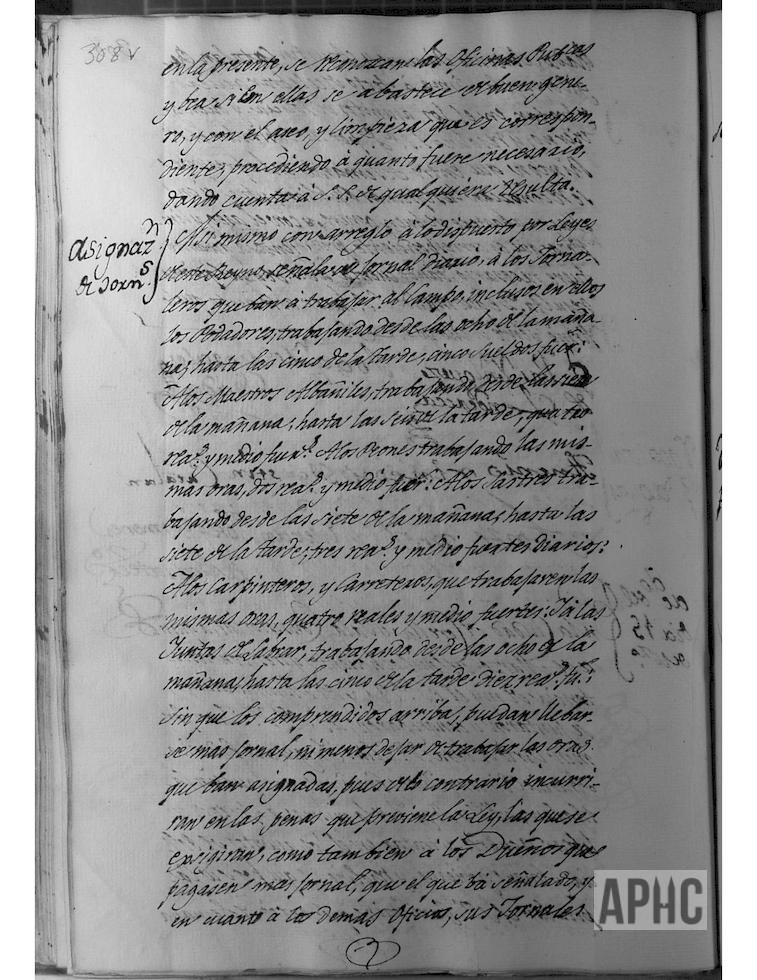 308v
en la presente, se reconozcan las Oficinas Publicas
y vea si en ellas se abastece de buen gene-
ro, y con el aseo, y limpieza que es correspon-
diente, procediendo à quanto fuere necesario,
dando cuenta à S. S. de qualquiera resulta.
Asignaz.n
de Jorn.s
Asi mismo con arreglo à lo dispuesto por Leyes
de este Reyno, señala de Jornal diario, à los Jorna-
leros que ban à trabajar al Campo, inclusos en ellos
los Podadores, trabajando desde las ocho de la maña-
na, hasta las cinco de la tarde, cinco sueldos
A los Maestros Albañiles, trabajando desde las siete
de la mañana, hasta las seis de la tarde, quatro
rea.s y medio fuer.s A los Peones trabajando las mis-
mas oras, dos rea.s y medio fuer: A los Sastres tra-
bajando desde las siete de la mañana, hasta las
siete de la tarde, tres rea.s y medio fuertes diarios:
A los Carpinteros, y Carreteros, que trabajaren las
mismas oras, quatro reales y medio fuertes: I à las
Juntas de Labrar, trabajando desde las ocho de la
mañana, hasta las cinco de la tarde diez rea.s fu.s:
sin que los comprendidos arriba, puedan llebar-
se mas Jornal, ni menos dejar de trabajar las oras
que ban asignadas, pues de lo contrario incurri-
ran en las penas que previene la Ley, las que se
exsigiran, como tambien à los Dueños que
pagasen mas Jornal, que el que bà señalado, y
en cuanto à los demàs Oficios, sus Jornales
APHC